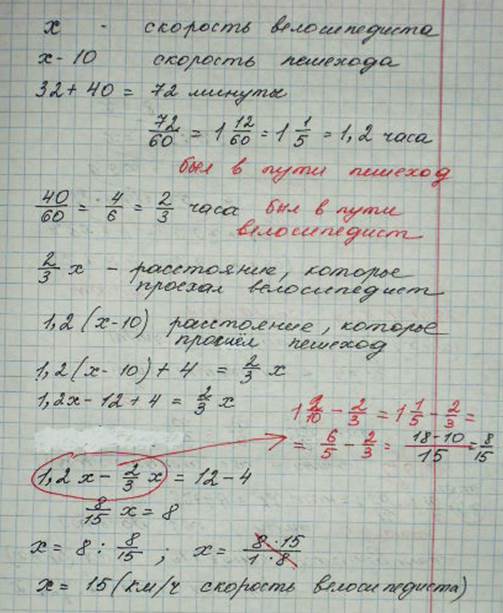 x - скорость велосипедиста
x-10 скорость пешехода
32+40 = 72 минуты
72/60 = 1 12/60 = 1 1/5 = 1,2 часа
был в пути пешеход
40/60 = 4/6 = 2/3 часа был в пути
велосипедист
2/3 x - расстояние, которое
проехал велосипедист
1,2(x-10) расстояние, которое
прошел пешеход
1,2(x-10)+4 = 2/3 x
1,2x-12+4 = 2/3 x
1 2/10 - 2/3 = 1 1/5 - 2/3 =
= 6/5 - 2/3 = 18-10/15 = 8/15
1,2x - 2/3 x = 12-4
8/15 x = 8
x = 8 : 8/15 ; x = 8·15/1·8
x = 15 (км/ч скорость велосипедиста)